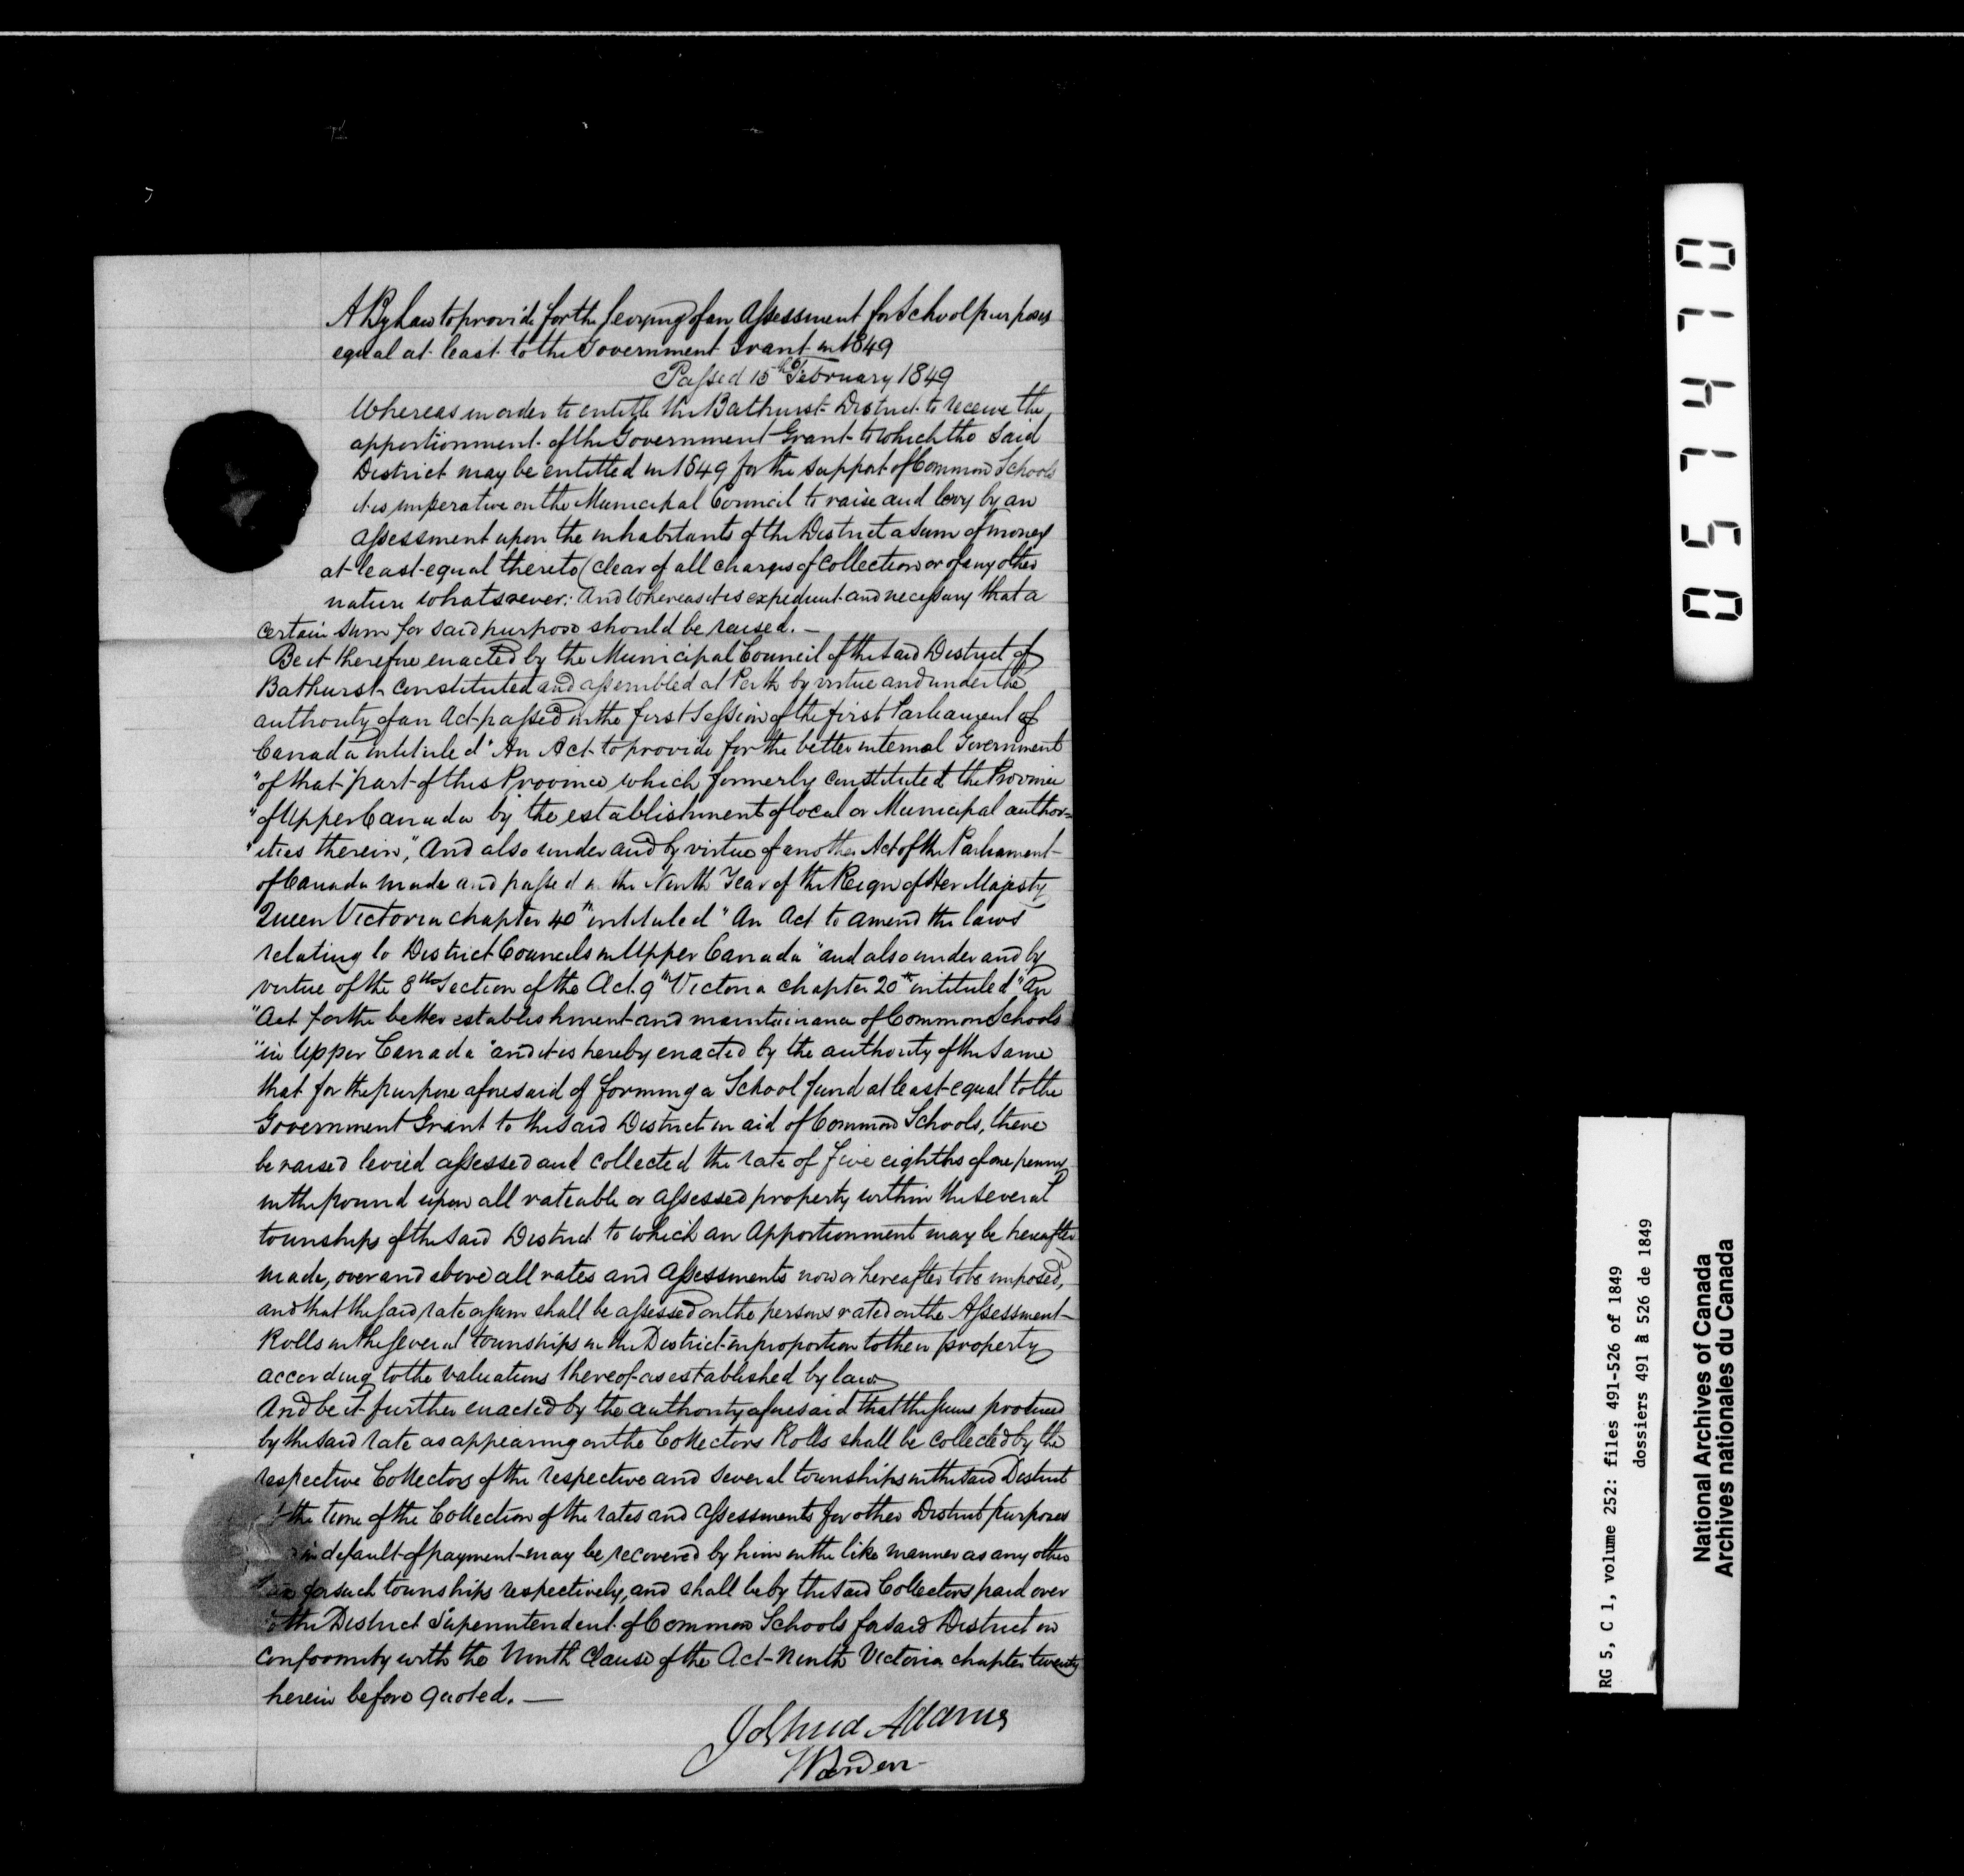 A By Law to provide for the levying of an Assessment for School purposes
equal at least to the Government Grant in 1849
Passed 15th February 1849
Whereas in order to entitle the Bathurst District to receive the
apportionment of the Government Grant to which the said
District may be entitled in 1849 for the support of Common Schools
it is imperative on the Municipal Council to raise and levy by an
assessment upon the inhabitants of the District a sum of money
at least equal thereto (clear of all charges of collection or of any other
nature whatsoever: And Whereas it is expedient and necessary that a
certain sum for said purpose should be raised. —
Be it therefore enacted by the Municipal Council of the said District of
Bathurst constituted and assembled at Perth by virtue and under the
authority of an Act passed in the first Session of the first Parliament of
Canada intituled "An Act to provide for the better internal Government
"of that part of this Province which formerly constituted the Province
"of Upper Canada by the establishment of local or Municipal author=
"ities therein," And also under and by virtue of another Act of the Parliament
of Canada made and passed in the Ninth Year of the Reign of Her Majesty
Queen Victoria chapter 40th intituled "An Act to amend the laws
relating to District Councils in Upper Canada" and also under and by
virtue of the 8th Section of the Act 9th Victoria chapter 20th intituled "An
"Act for the better establishment and maintainance of Common Schools
"in Upper Canada" and it is hereby enacted by the authority of the same
that for the purpose aforesaid of forming a School fund at least equal to the
Government Grant to the said District in aid of Common Schools, there
be raised levied assessed and collected the rate of five eighths of one penny
in the pound upon all rateable or assessed property within the several
townships of the said District to which an Apportionment may be hereafter
made, over and above all rates and assessments now or hereafter to be imposed,
and that the said rate or sum shall be assessed on the persons rated on the Assessment
Rolls in the several townships in the District in proportion to their property
according to the valuations thereof as established by law
And be it further enacted by the authority aforesaid that the sums produced
by the said rate as appearing on the Collectors Rolls shall be collected by the
respective Collectors of the respective and several townships in the said District
the time of the Collection of the rates and assessments for other District purposes
in default of payment may be recovered by him in the like manner as any other
for such townships respectively, and shall be by the said Collectors paid over
to the District Superintendent of Common Schools for said District in
conformity with the Ninth Clause of the Act Ninth Victoria chapter twenty
herein before quoted. —
Joshua Adams
Warden
051410
RG 5, C 1, volume 252: files 491-526 of 1849
dossiers 491 à 526 de 1849
National Archives of Canada
Archives nationales du Canada